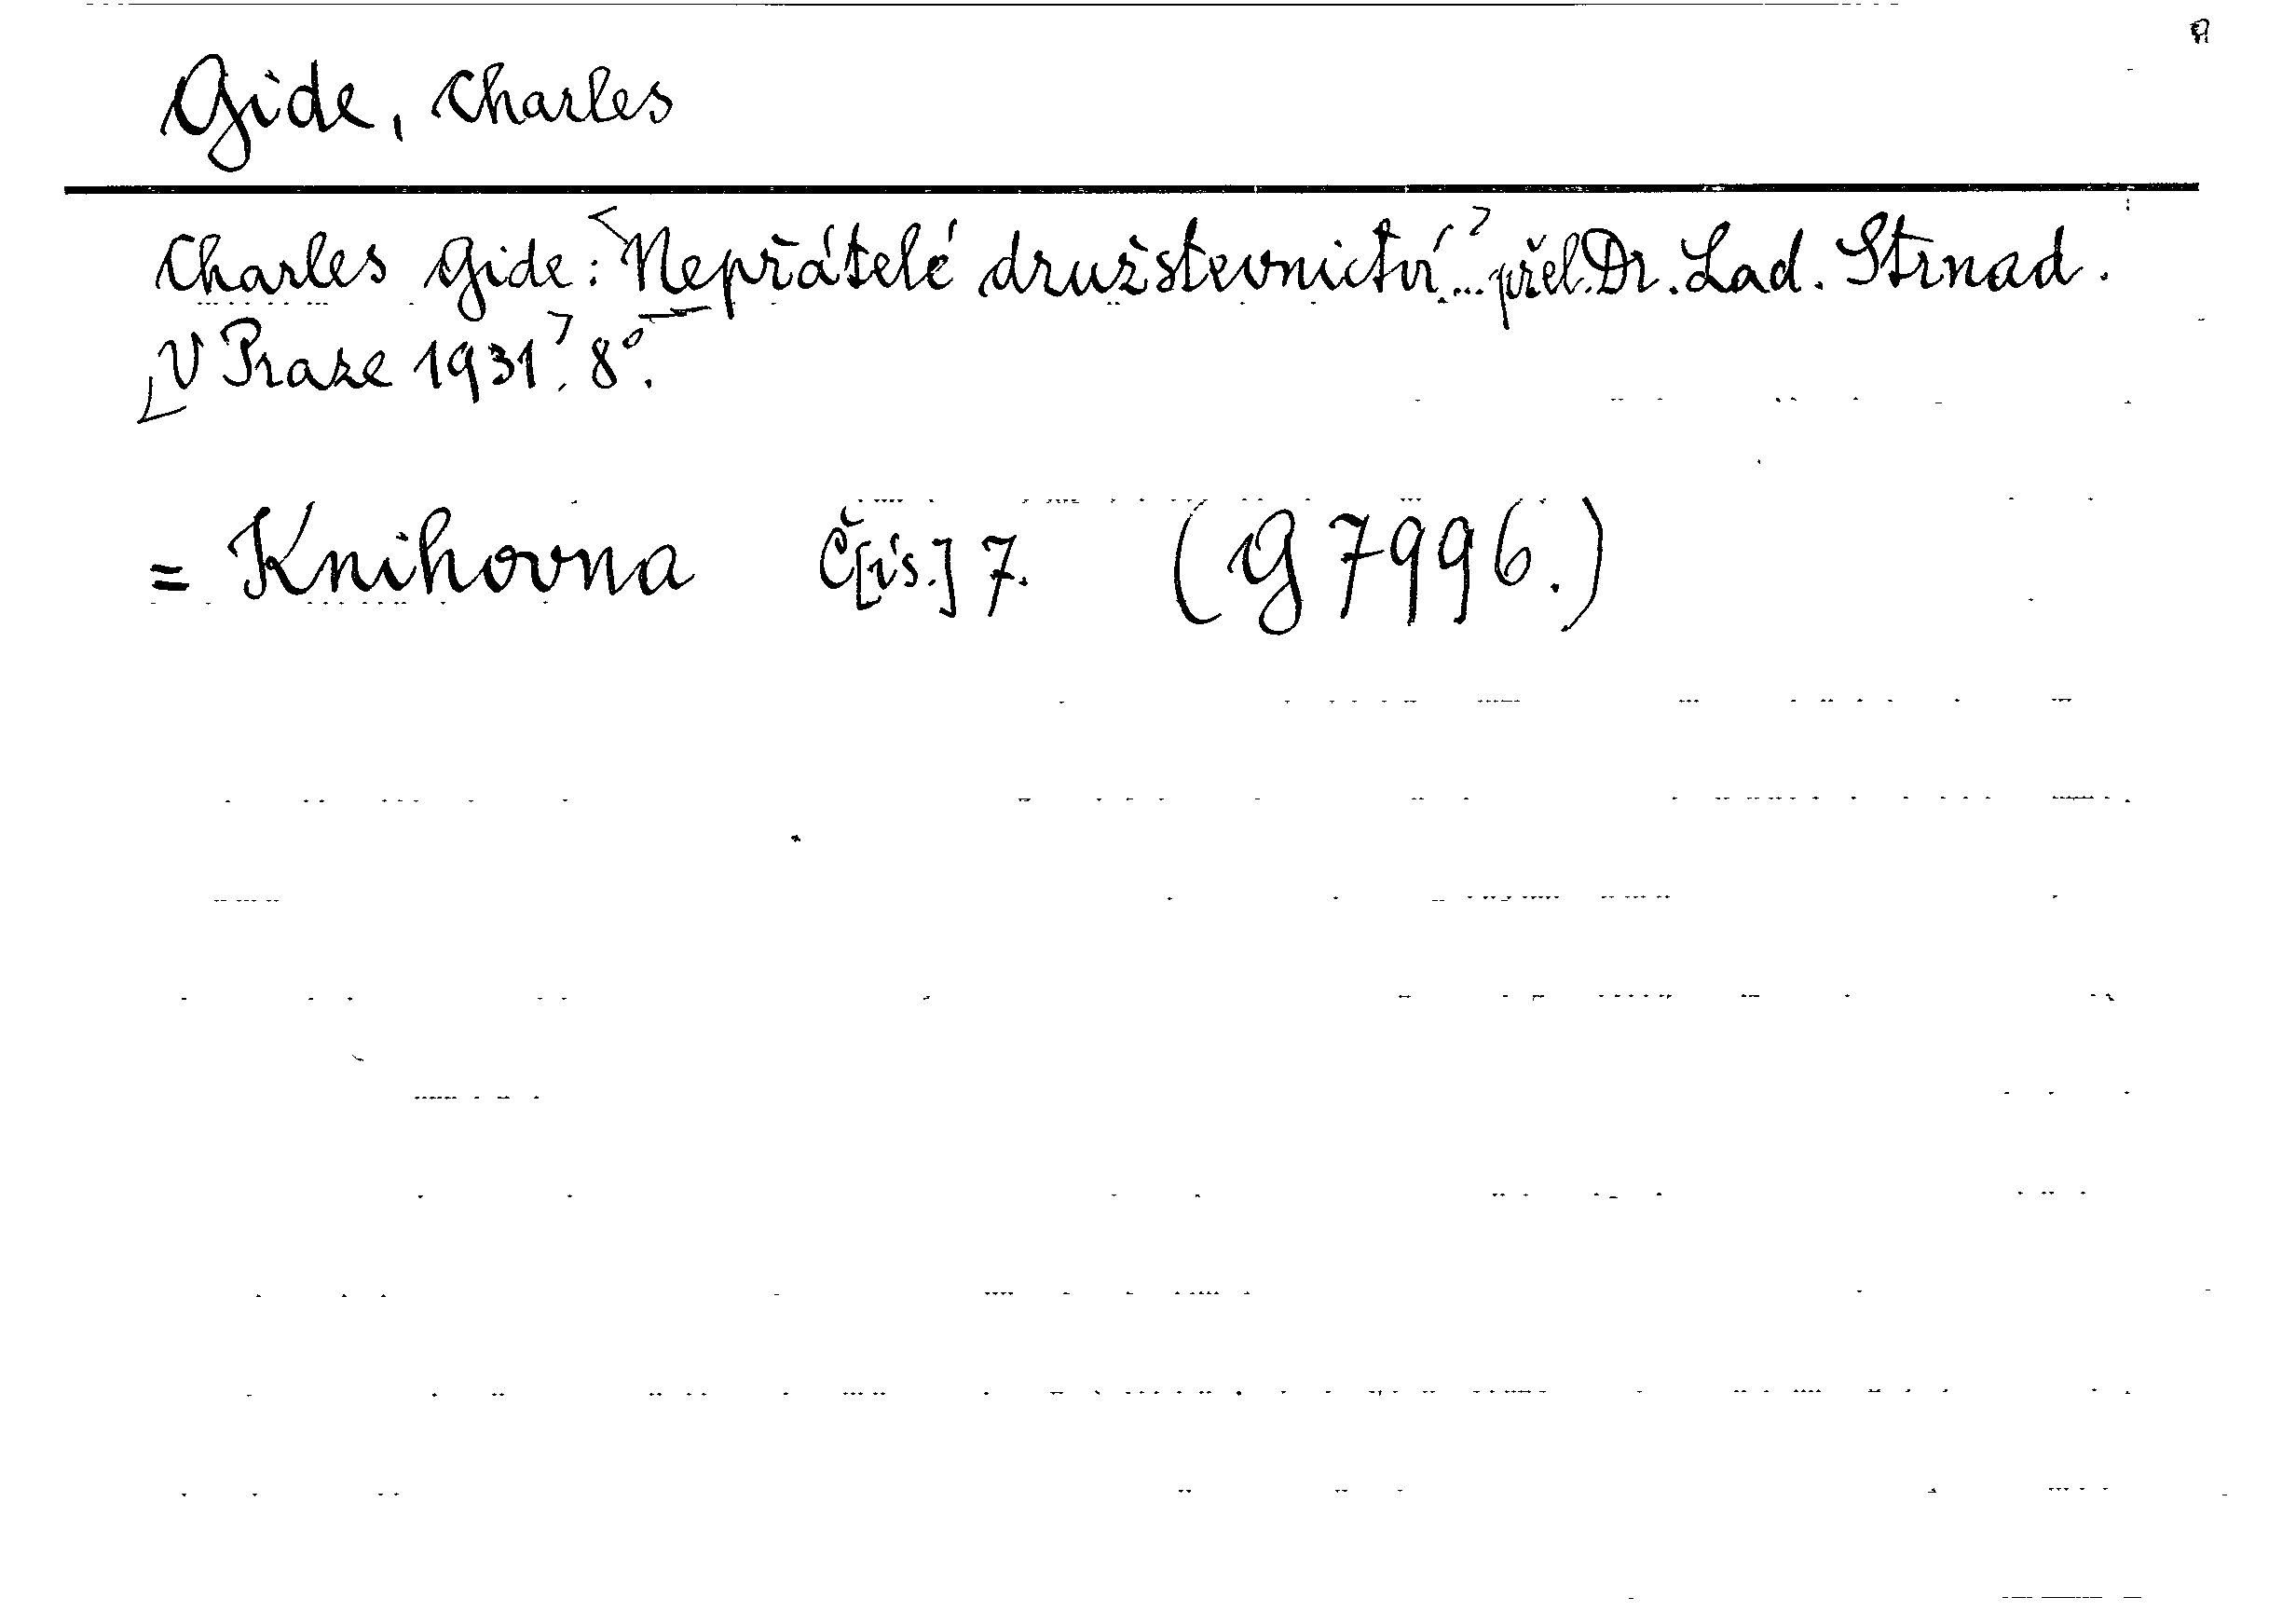 Gide, Charles
Charles Gide: Nepřátelé družstevnictví... přel. Dr. Lad. Strnad.
V Praze 1931. 8°.
= Knihovna Č[ís.] 7. (G 7996.)